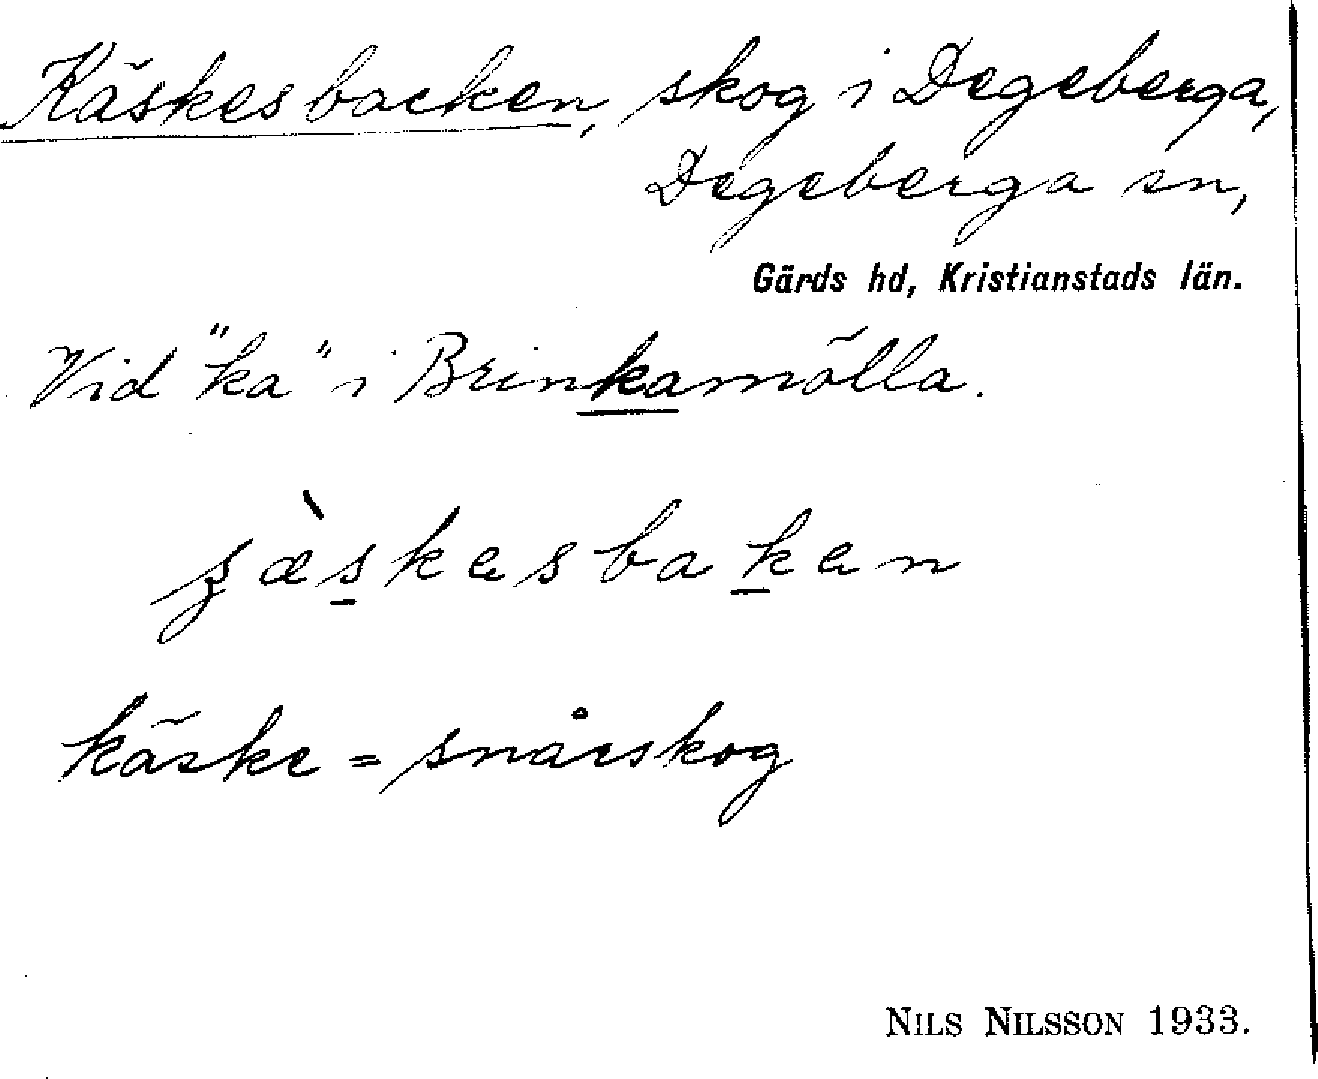 Käskesbacken, skog i Degeberga,
Degeberga sn,
Gärds hd, Kristianstads län.
Vid "ka" i Brinkamölla.
käske = snårskog
NILS NILSSON 1933.